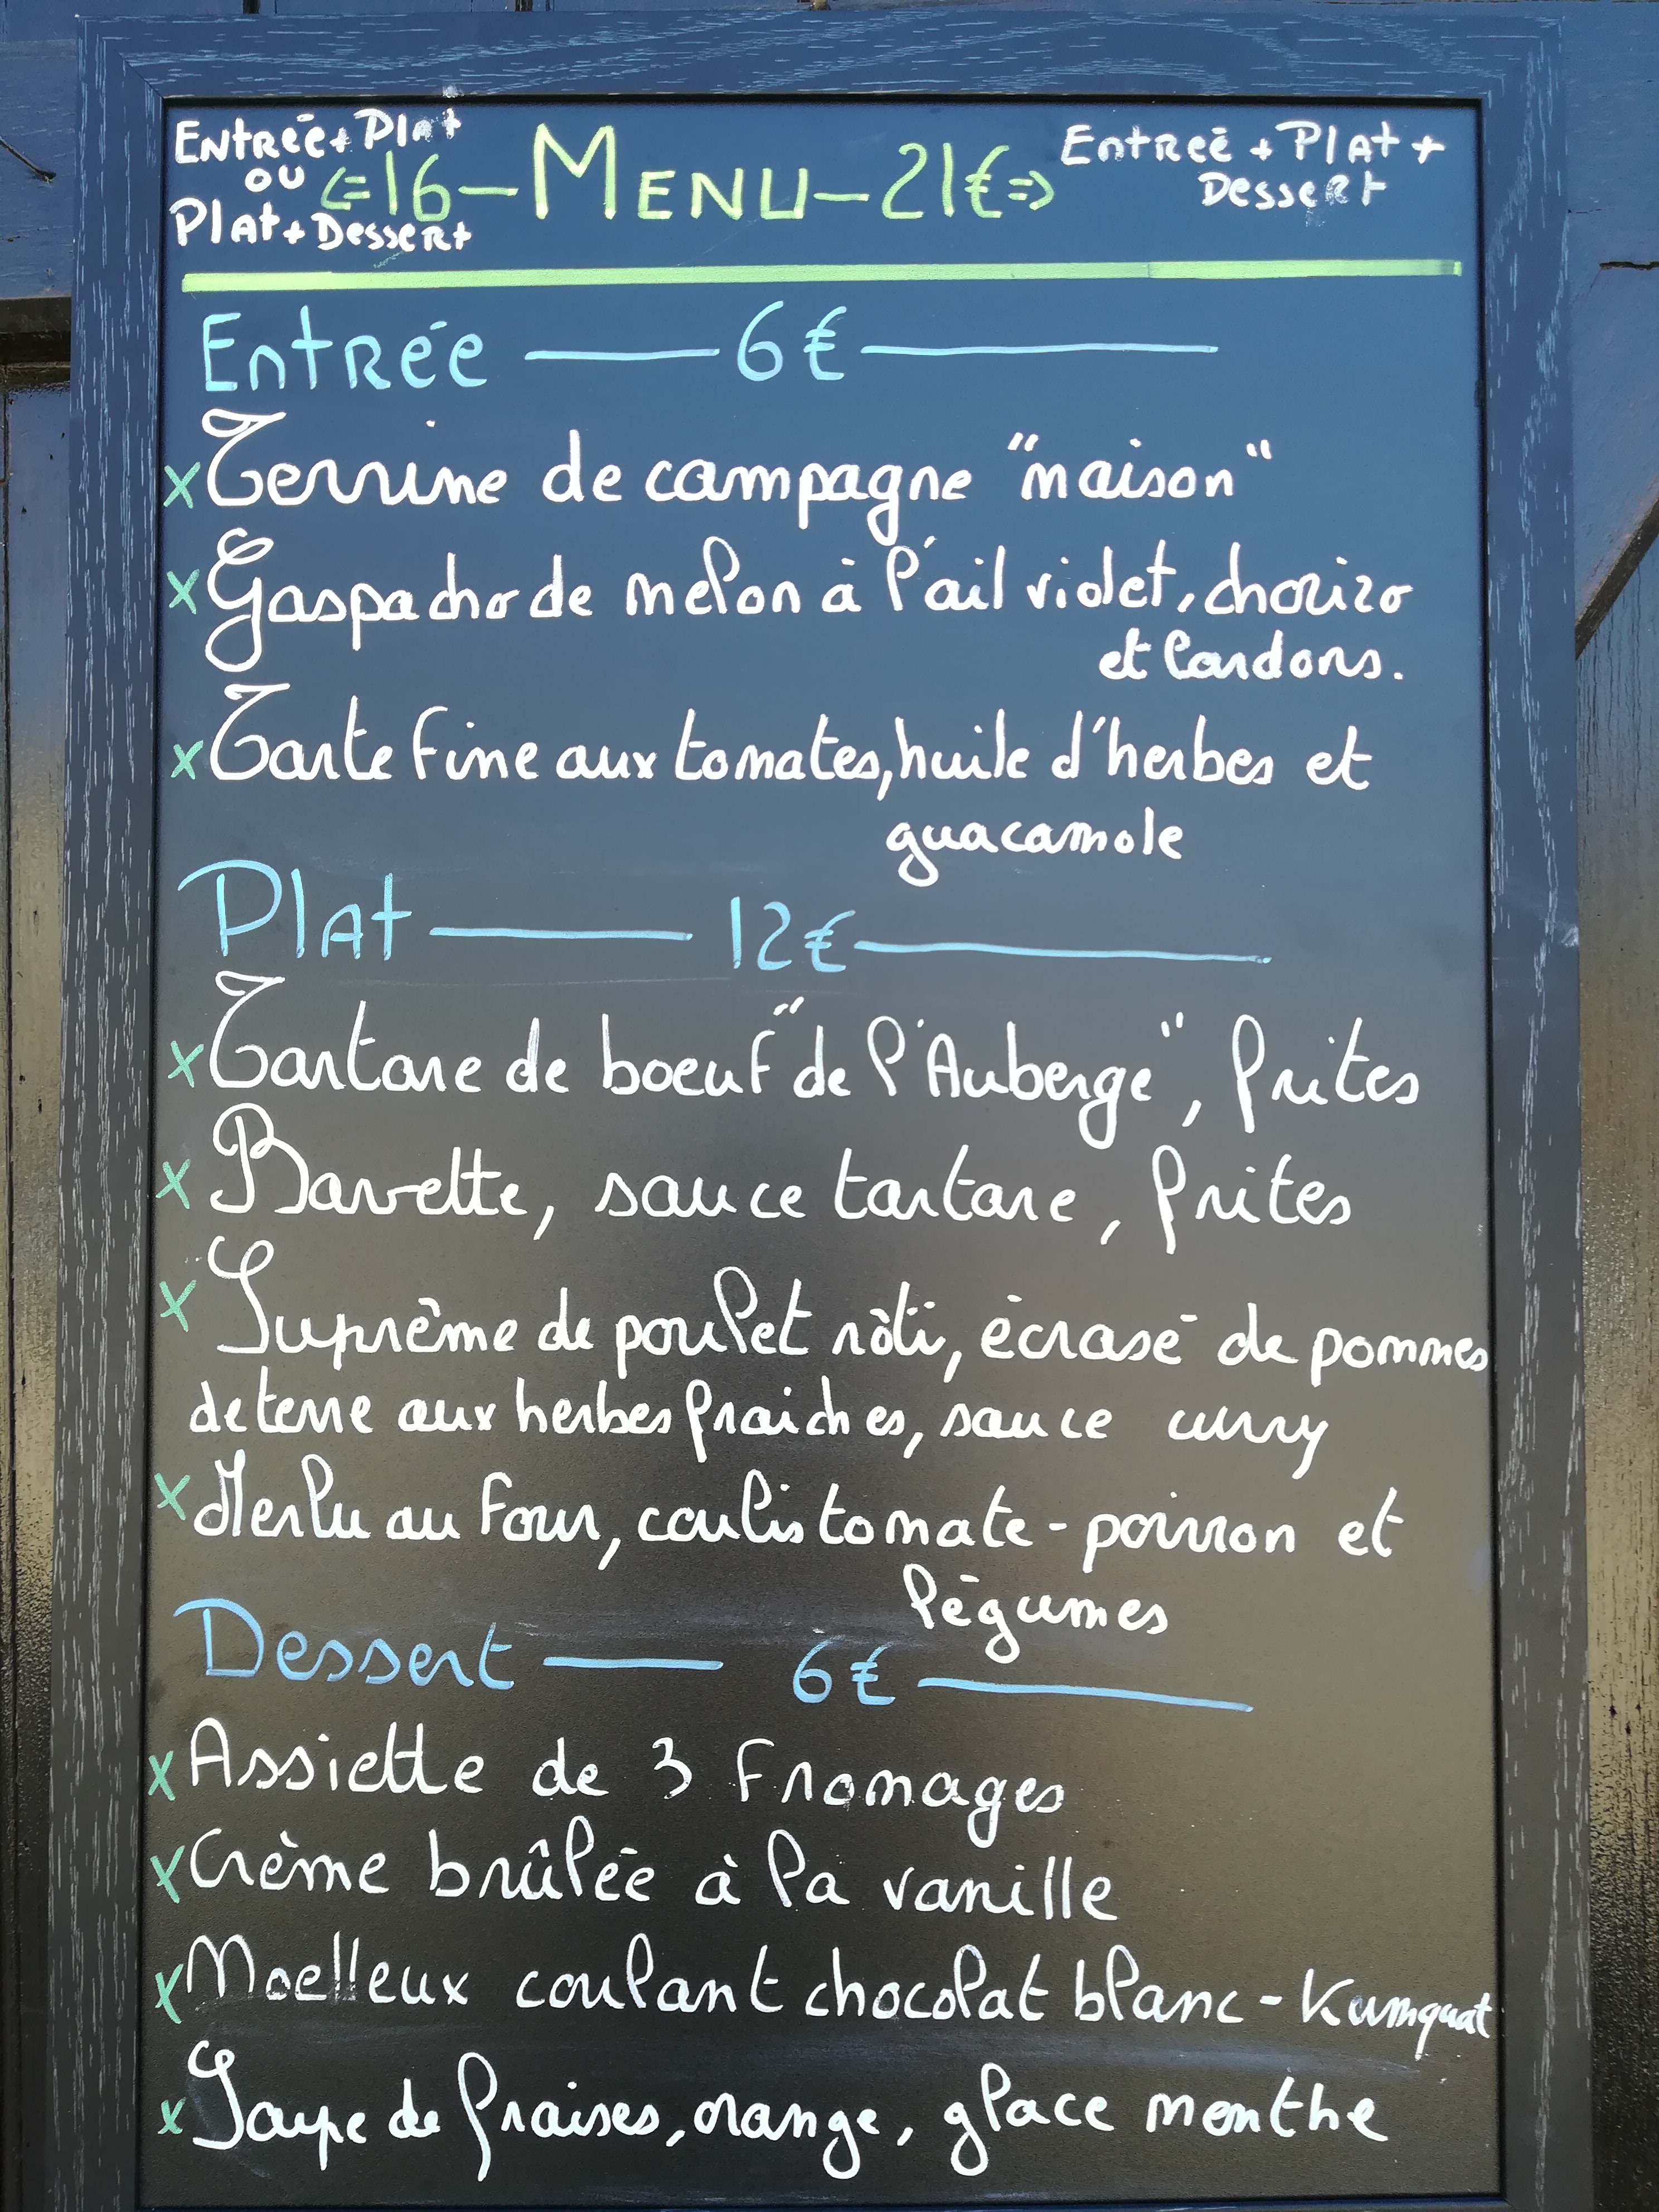 Entrée + Plat
ou
Plat + Dessert
<= 16 — Menu — 21€ =>
Entrée + Plat +
Dessert
Entrée — 6€ —
x Terrine de campagne "maison"
x Gaspacho de melon à l'ail violet, chorizo
et lardons.
x Tarte fine aux tomates, huile d'herbes et
guacamole
Plat — 12€ —
x Tartare de boeuf "de l'Auberge", frites
x Bavette, sauce tartare, frites
x Suprême de poulet rôti, écrasé de pommes
de terre aux herbes fraiches, sauce curry
x Merlu au four, coulis tomate - poivron et
légumes
Dessert — 6€ —
x Assiette de 3 Fromages
x Crème brûlée à la vanille
x Moelleux coulant chocolat blanc - Kumquat
x Soupe de fraises, orange, glace menthe